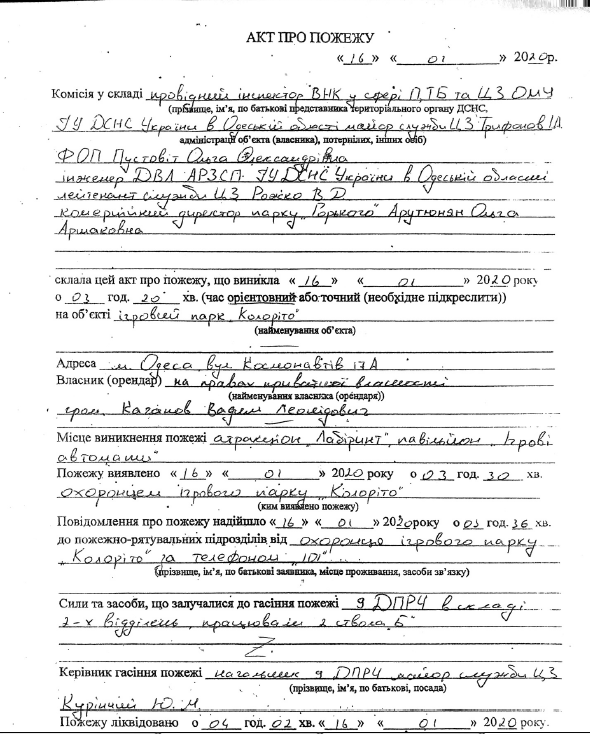 АКТ ПРО ПОЖЕЖУ
« 16 » « 01 » 2020р.
Комісія у складі провідний інспектор ВНК у сфері П,ТБ та ЦЗ ОМУ
(прізвище, ім’я, по батькові представника територіального органу ДСНС,
ГУ ДСНС України в Одеській області майор служби ЦЗ Трифонов І.А
адміністрації об’єкта (власника), потерпілих, інших осіб)
ФОП Пустовіт Ольга Олександрівна
інженер ДВЛ АРЗСП ГУ ДСНС України в Одеській області
лейтенант служби ЦЗ Рожко В.Д
комерційний директор парку „Горького" Арутюнян Ольга
Армаковна
склала цей акт про пожежу, що виникла « 16 » « 01 » 2020 року
о 03 год. 20 хв. (час орієнтовний або точний (необхідне підкреслити))
на об’єкті ігровий парк „Колоріто"
(найменування об’єкта)
Адреса м. Одеса вул Космонавтів 17А
Власник (орендар) на правах приватної власності
(найменування власника (орендаря))
гром. Каганов Вадем Леонідович
Місце виникнення пожежі атракціон „Лабіринт", павільйон „Ігрові
автомати"
Пожежу виявлено « 16 » « 01 » 2020 року о 03 год. 30 хв.
охоронцем ігрового парку „Колоріто"
(ким виявлено пожежу)
Повідомлення про пожежу надійшло « 16 » « 01 » 2020року о 03 год. 36 хв.
до пожежно-рятувальних підрозділів від охоронця ігрового парку
„Колоріто" за телефоном „101"
(прізвище, ім’я, по батькові заявника, місце проживання, засоби зв’язку)
Сили та засоби, що залучалися до гасіння пожежі 9 ДПРЧ в складі
2-х відділень, працювали 2 ствола „Б"
Z
Керівник гасіння пожежі начальник 9 ДПРЧ майор служби ЦЗ
(прізвище, ім’я, по батькові, посада)
Ю. М.
Пожежу ліквідовано о 04 год. 02 хв. « 16 » « 01 » 2020 року.